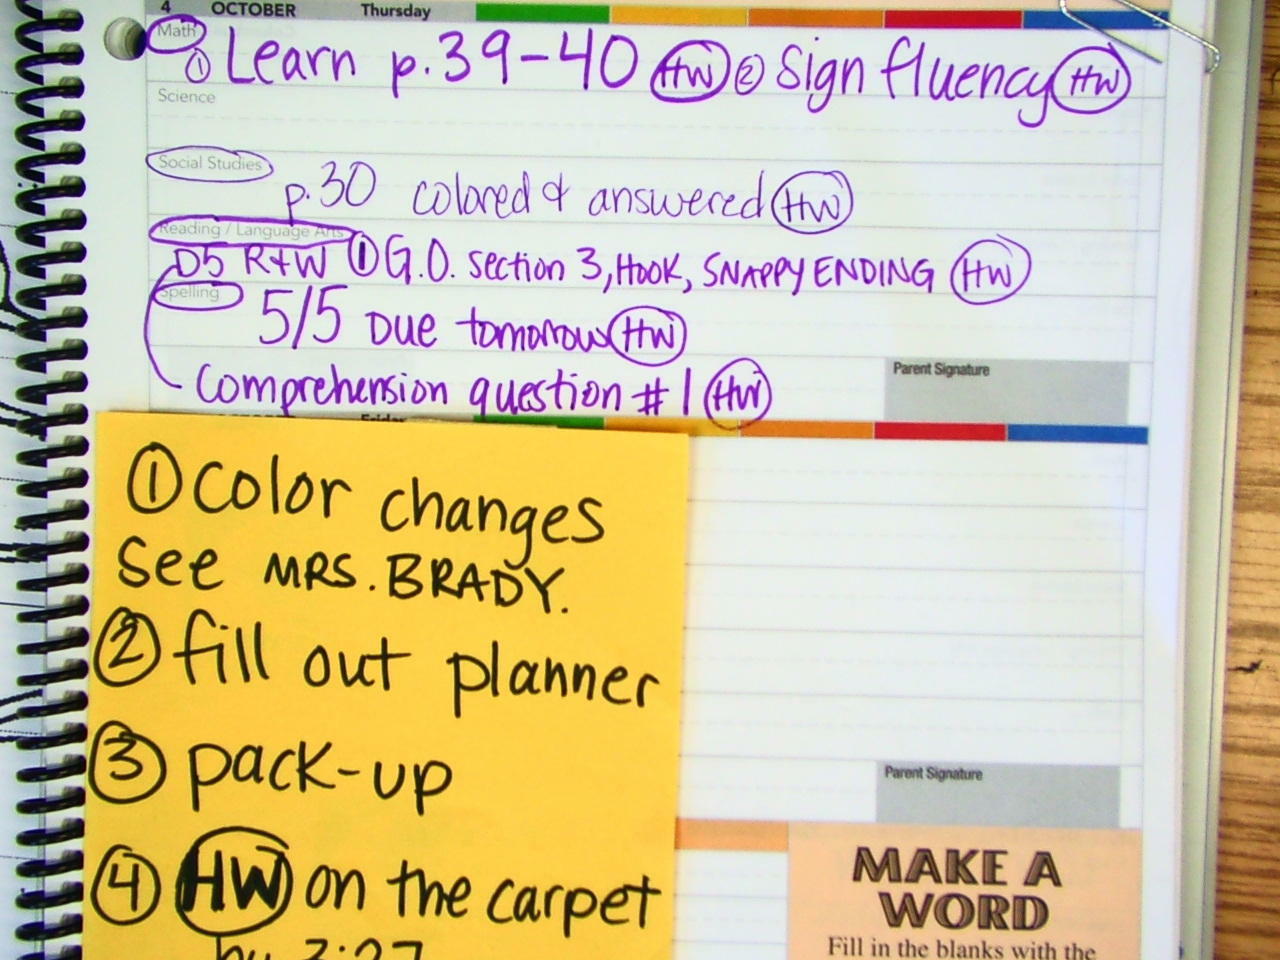 4 OCTOBER Thursday
Math
① Learn p.39-40 HW ② Sign fluency HW
Science
Social Studies
p.30 colored & answered HW
Reading / Language Arts
D5 R+W ① G.O. section 3, HOOK, SNAPPY ENDING HW
Spelling
5/5 Due tomorrow HW
Comprehension question #1 HW
Parent Signature
Friday
① color changes
see MRS. BRADY.
② fill out planner
③ pack-up
④ HW on the carpet
by 3:27
Parent Signature
MAKE A
WORD
Fill in the blanks with the